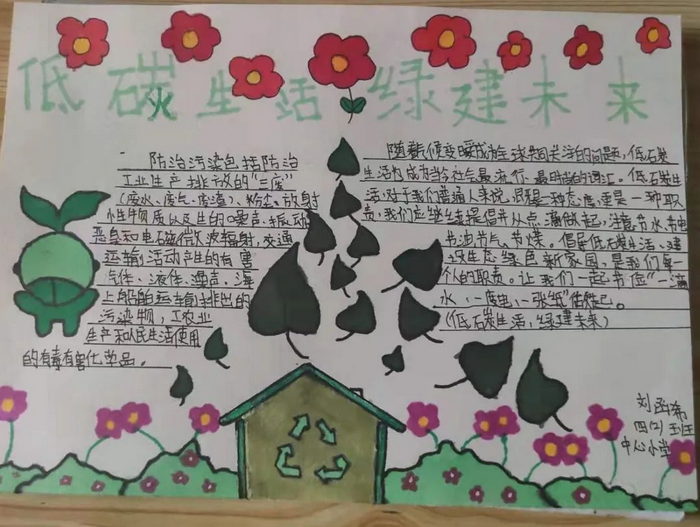 低碳生活 绿建未来
一 防治污染包括防治
工业生产排放的“三废”
（废水、废气、废渣）、粉尘、放射
性物质以及产生的噪声、振动
恶臭和电磁微波辐射，交通
运输活动产生的有害
气体、液体、噪声、海
上船舶运输排出的
污染物，工农业
生产和人民生活使用
的有毒有害化学品。
随着气候变暖成为全球
生活也成为当今社会最流行、最时尚的词汇。低碳生
活，对于我们普通人来说，既是一种态度，更是一种职
责，我们应继续提倡并从点滴做起，注意节水、节电
节油节气、节煤。倡导低碳生活、建
绿色新家园，是我们每一
个人的职责。让我们一起节俭“一滴
水，一度电，一张纸”
（低碳生活，绿建未来）
四（2）班
中心小学